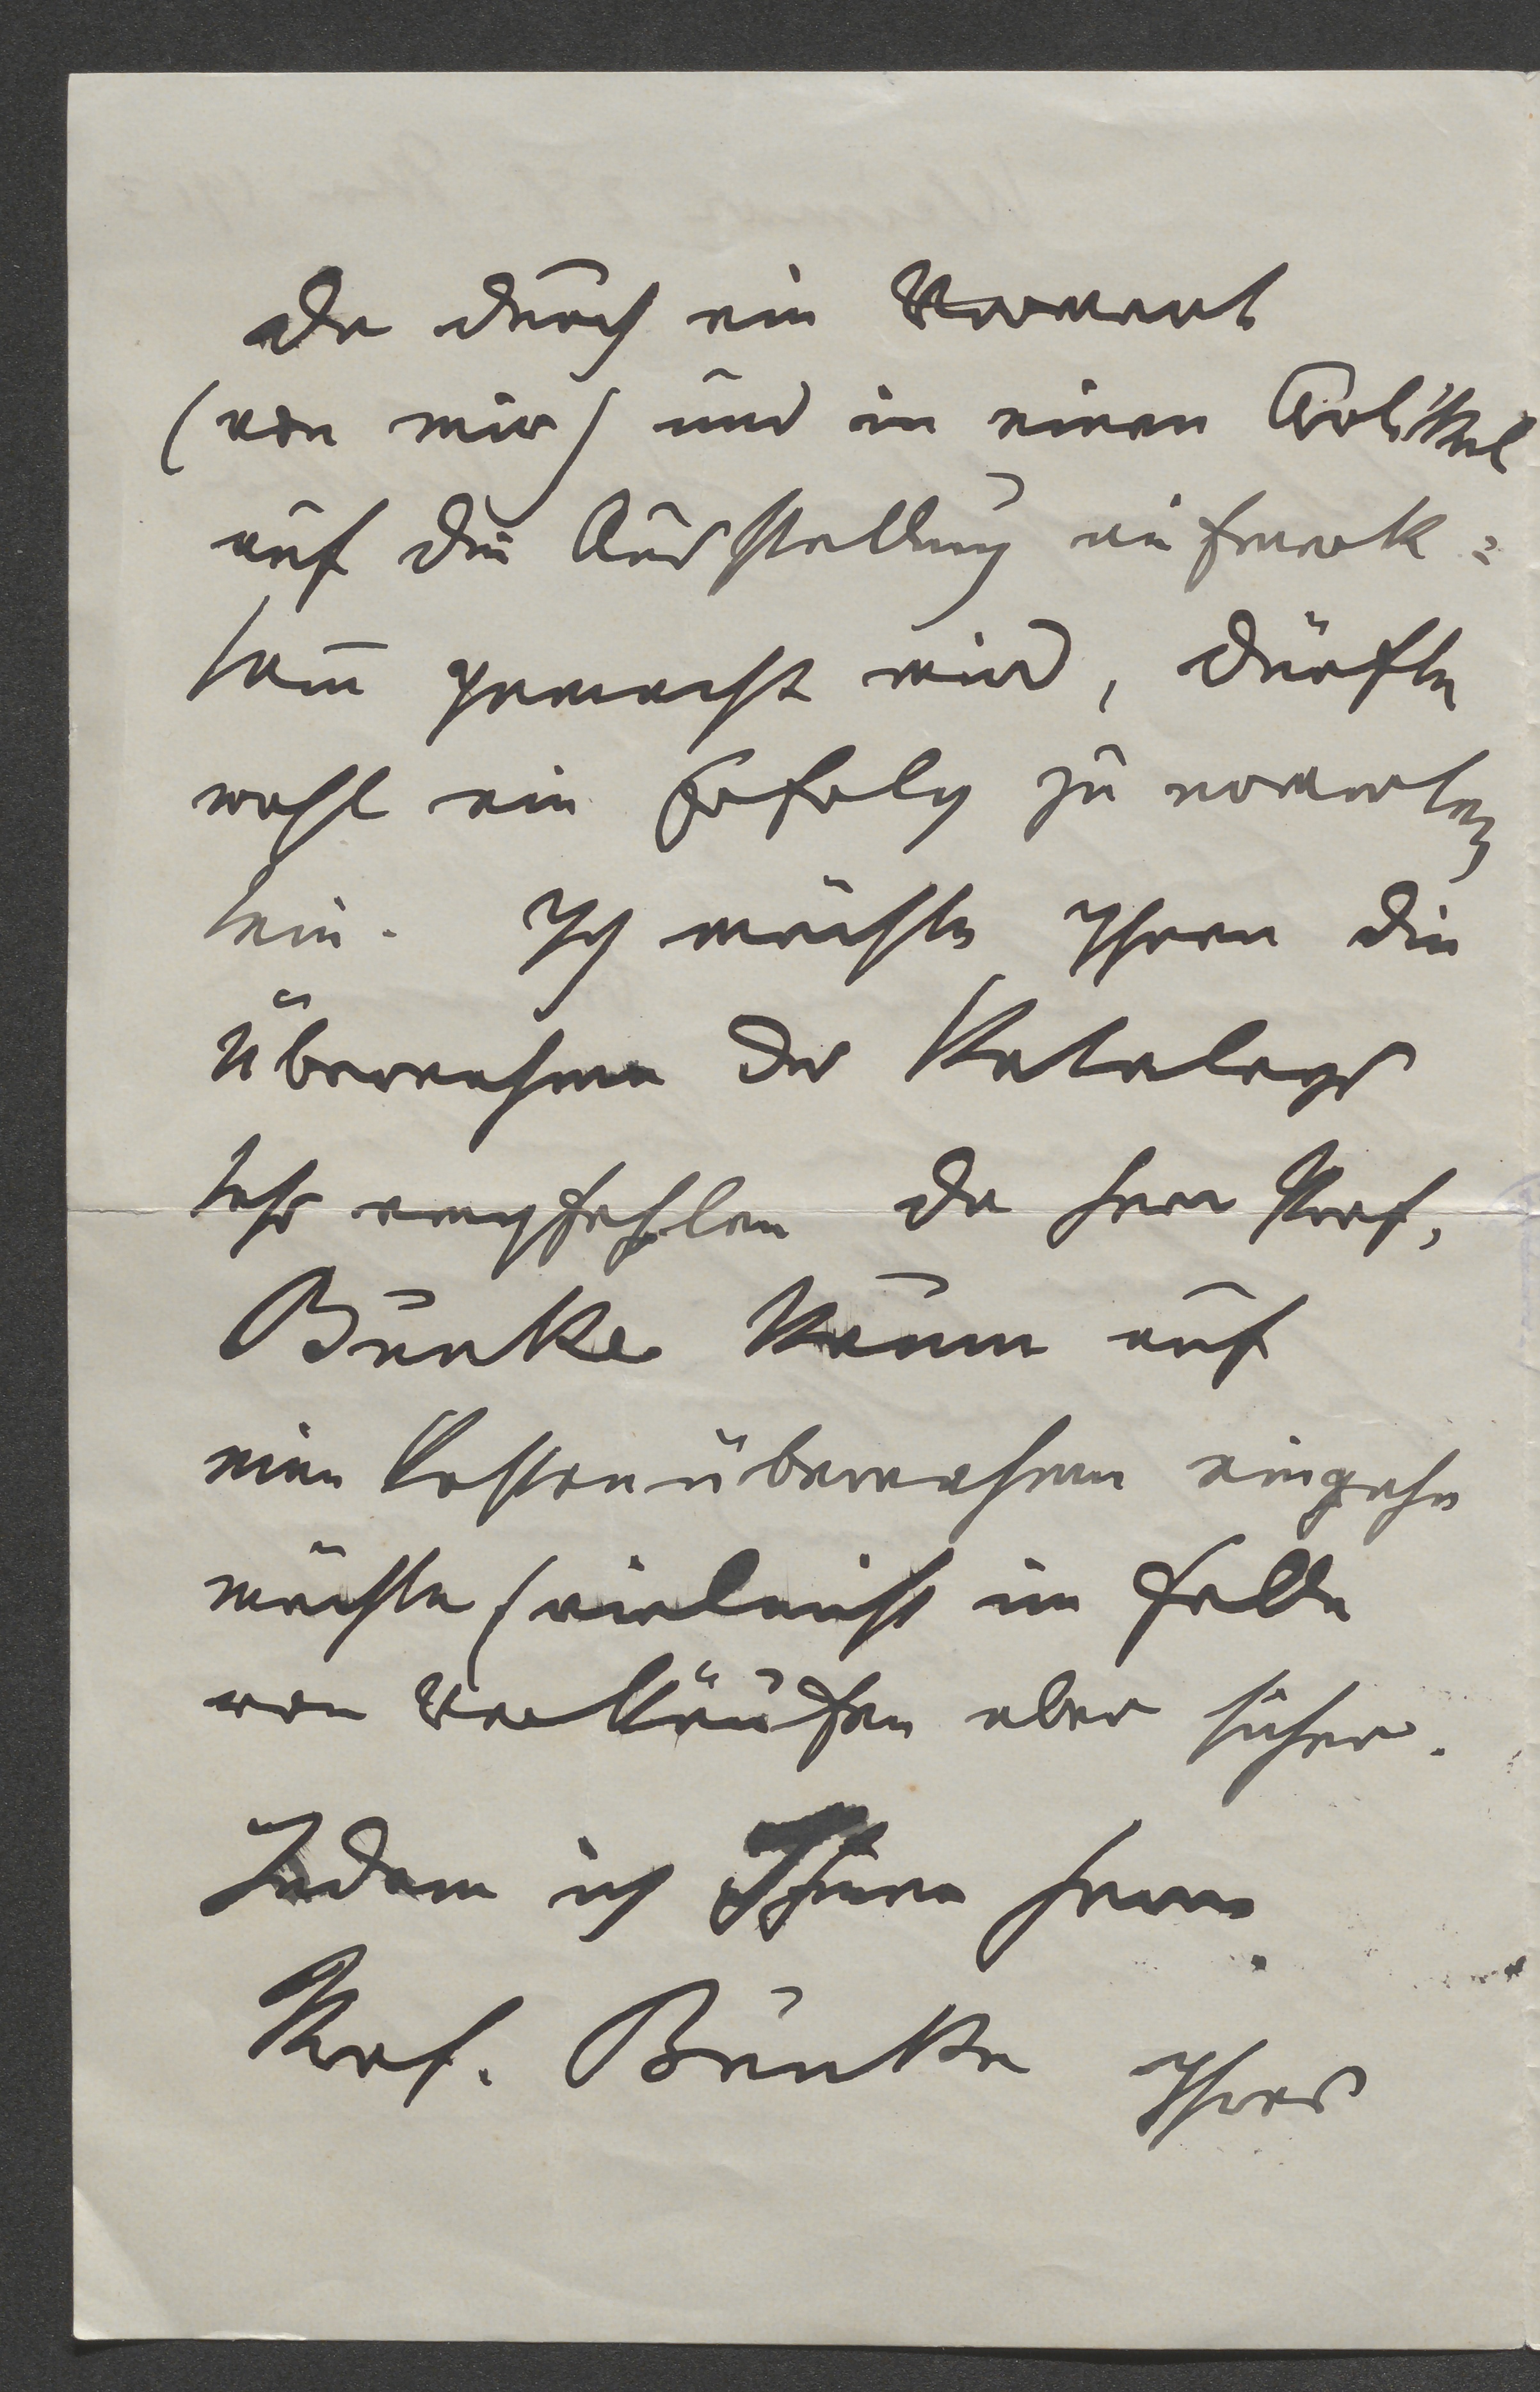 da durch ein Vorwort
(von mir) und in einen Artikel
auf die Ausstellung aufmerk=
sam gemacht wird, dürfte
wohl ein Erfolg zu erwarten
sein. Ich möchte Ihnen die
Übernahme des Katalogs
sehr empfehlen da Herr Prof.
Bunke kaum auf
eine Kostenübernahme eingehn
möchte (vielleicht im Falle
von Verkäufen aber sicher.
Indem ich Ihnen Herrn
Prof. Bunke Ihres